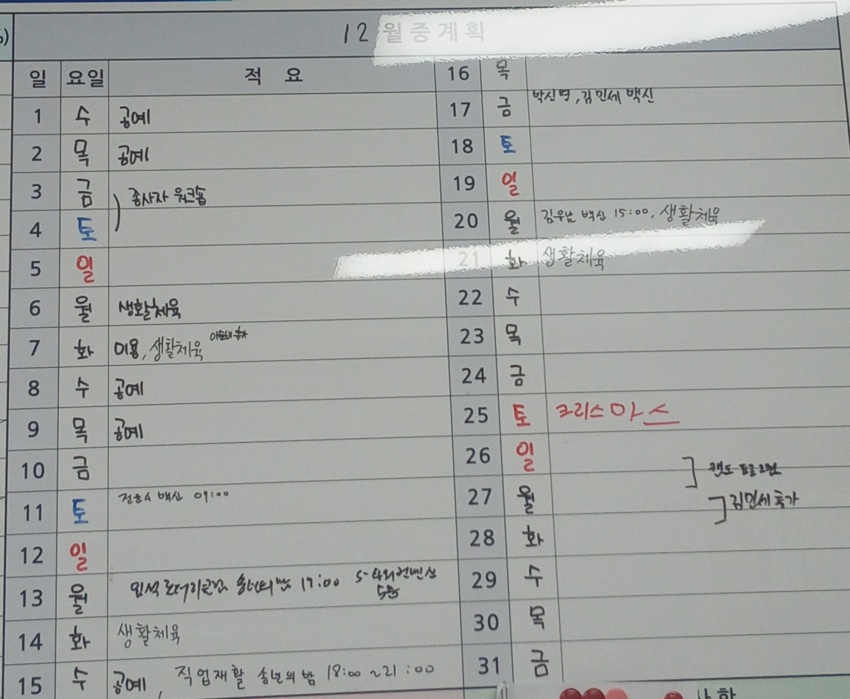 12월중계획
일 요일 적요
1 수 공예
2 목 공예
3 금 종사자 워크숍
4 토
5 일
6 월 생활체육
7 화 미용, 생활체육
8 수 공예
9 목 공예
10 금
11 토 백신 09:00
12 일
13 월 19:00
14 화 생활체육
15 수 공예, 직업재활 송년의 밤 18:00 ~ 21:00
16 목
17 금 박신명, 김민세 백신
18 토
19 일
20 월 백신 15:00, 생활체육
21 화 생활체육
22 수
23 목
24 금
25 토 크리스마스
26 일
27 월 김민세 휴가
28 화
29 수
30 목
31 금